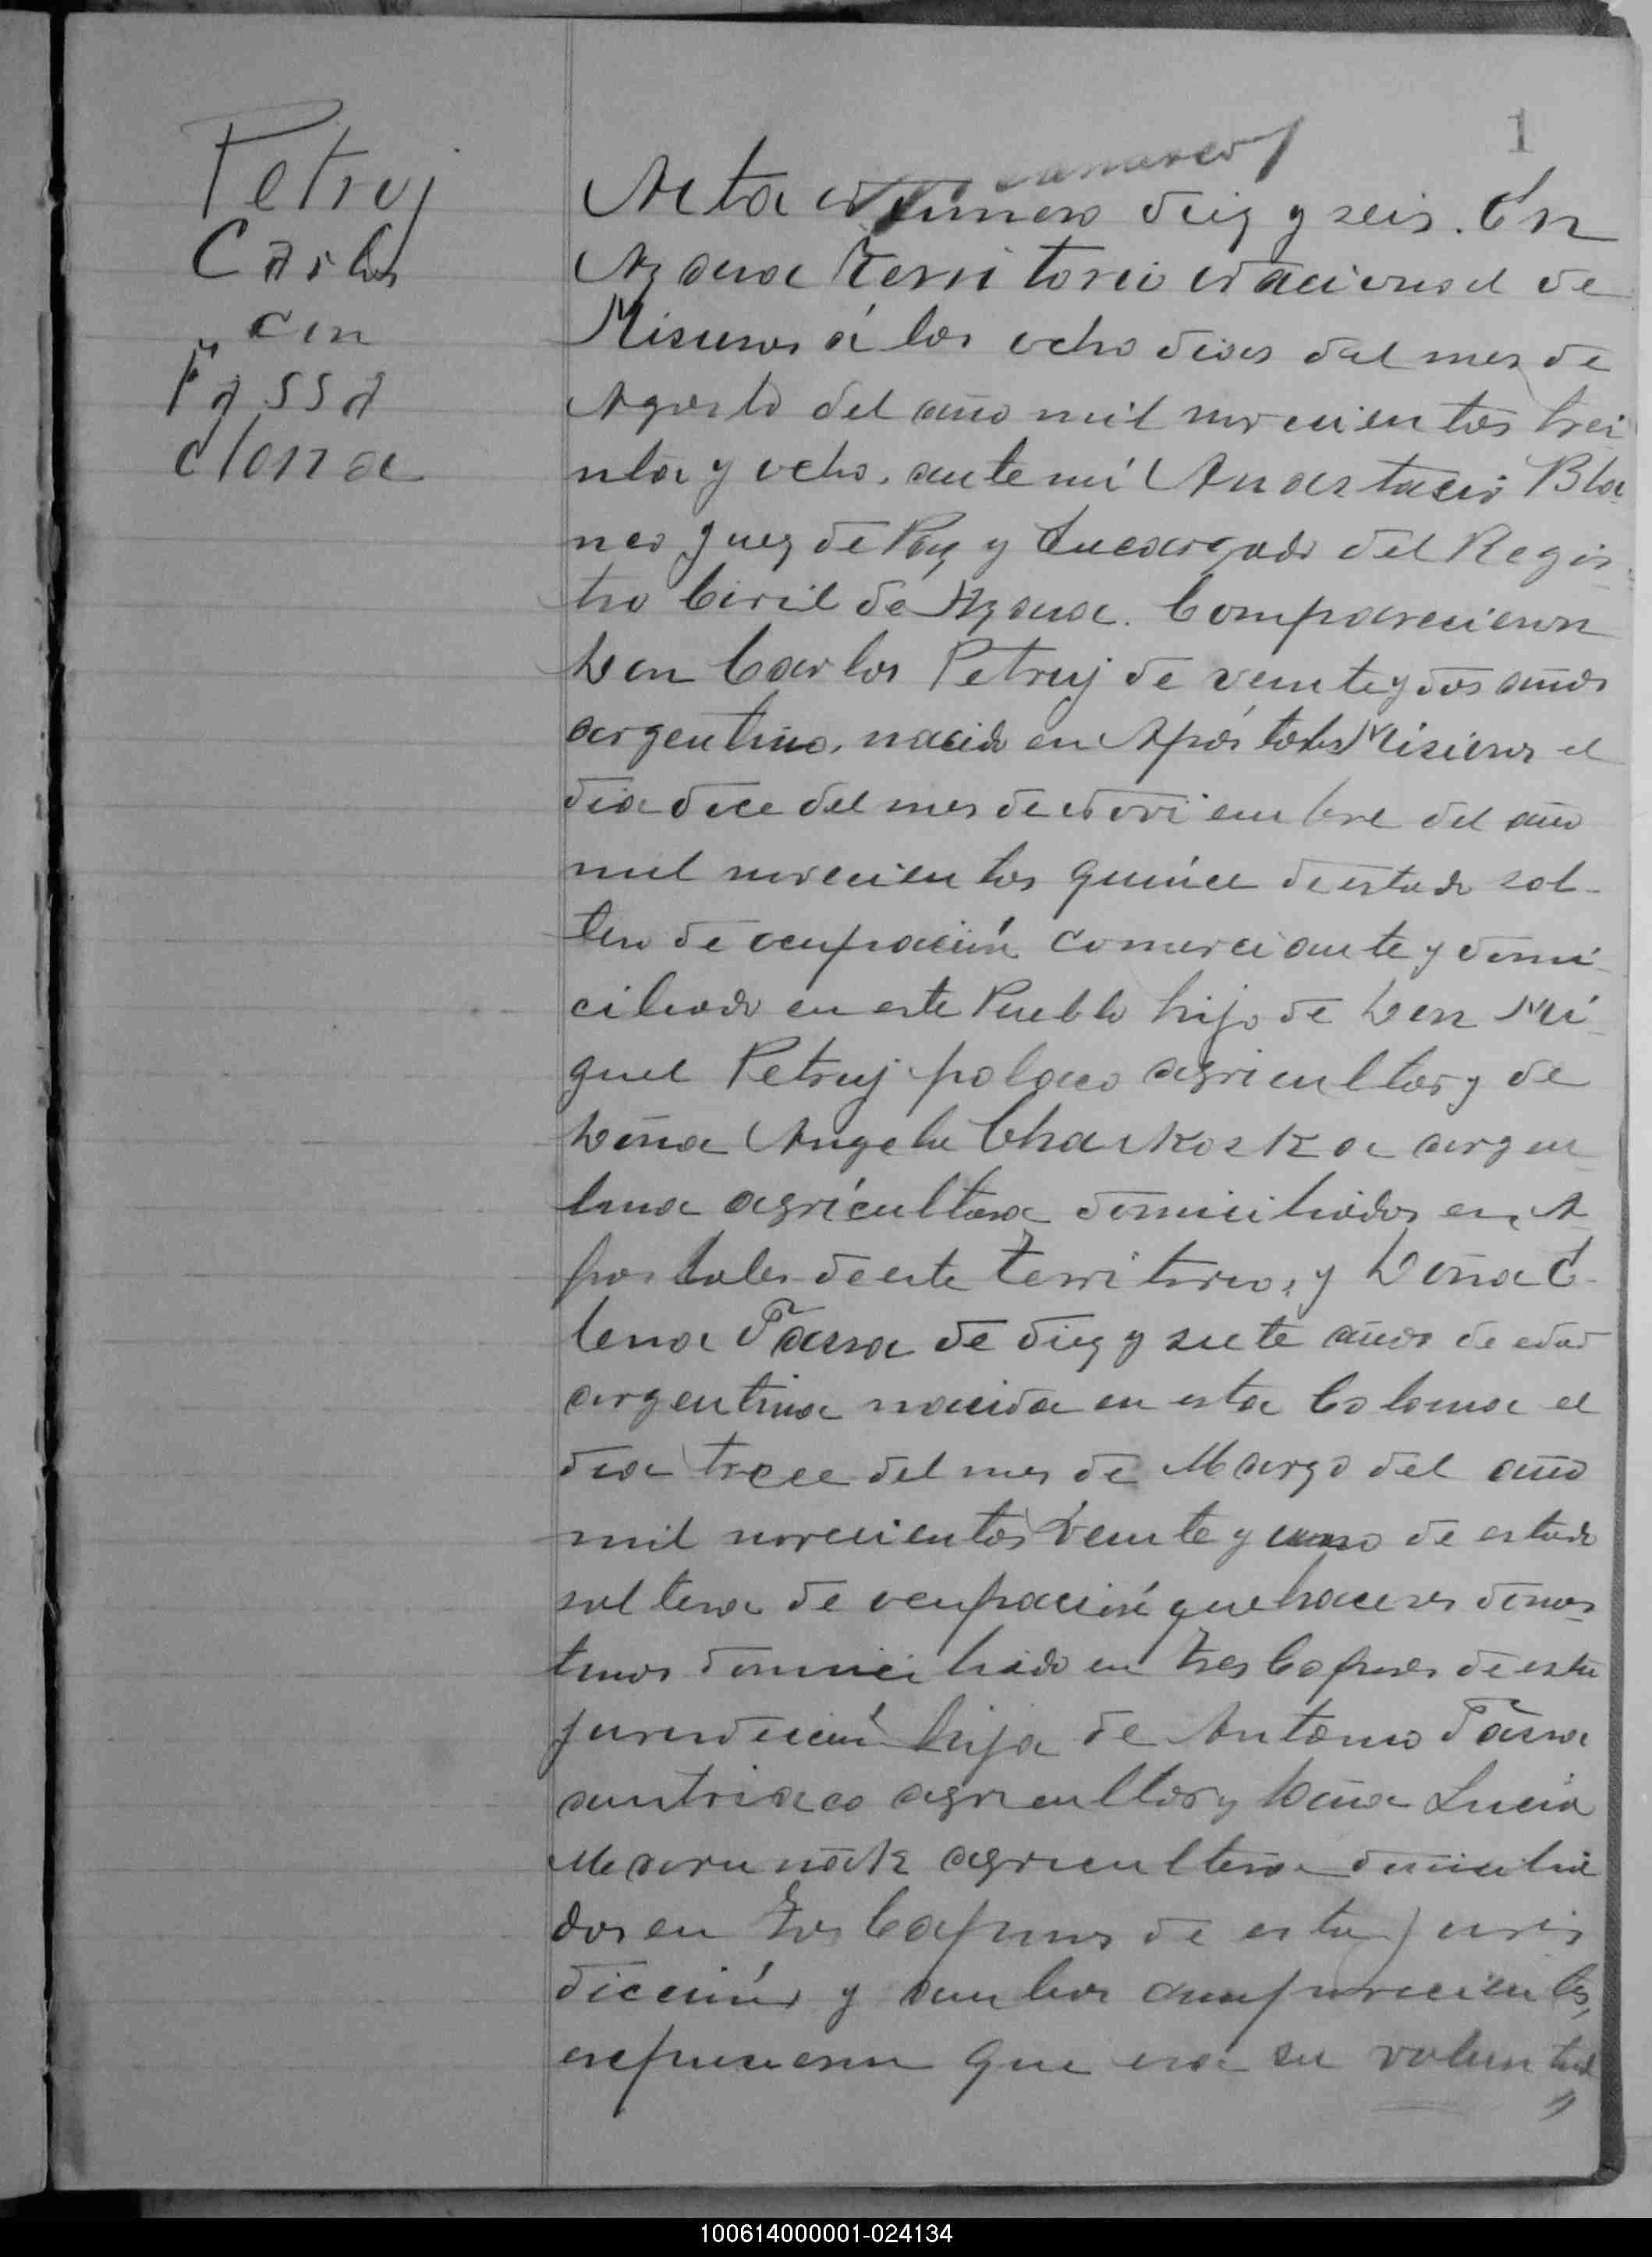 1
Petruj
Carlos
con
Fassa
Elena
Acta Número diez y seis. En
Azara Territorio Nacional de
Misiones á los ocho dias del mes de
Agosto del año mil novecientos trei
nta y ocho, ante mí Anastacio Bla-
nco Juez de Paz y Encargado del Regis-
tro Civil de Azara. Comparecieron
Don Carlos Petruj de veinte y dos años
argentino, nacido en Apóstoles Misiones el
dia doce del mes de Noviembre del año
mil novecientos quince de estado sol-
tero de ocupación comerciante y domi-
ciliado en este Pueblo hijo de Don Mi-
guel Petruj polaco agricultor y de
Doña Angela argen-
tina agricultora domiciliados en A-
postoles de este Territorio, y Doña E-
lena Fassa de diez y siete años de edad
argentina nacida en esta Colonia el
dia trece del mes de Marzo del año
mil novecientos veinte y uno de estado
soltera de ocupación quehaceres domes-
ticos domiciliado en Tres Capones de esta
jurisdición hija de Antonio Fassa
austriaco agricultor y Doña Lucia
agricultora domicilia
dos en Tres Capones de esta juris
dicción y ambos comparecientes,
expusieron que era su voluntad
100614000001-024134